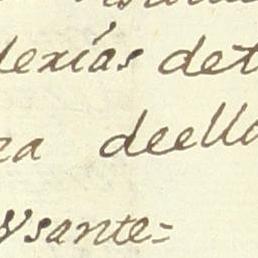 lexías det
ra deello
ysante=